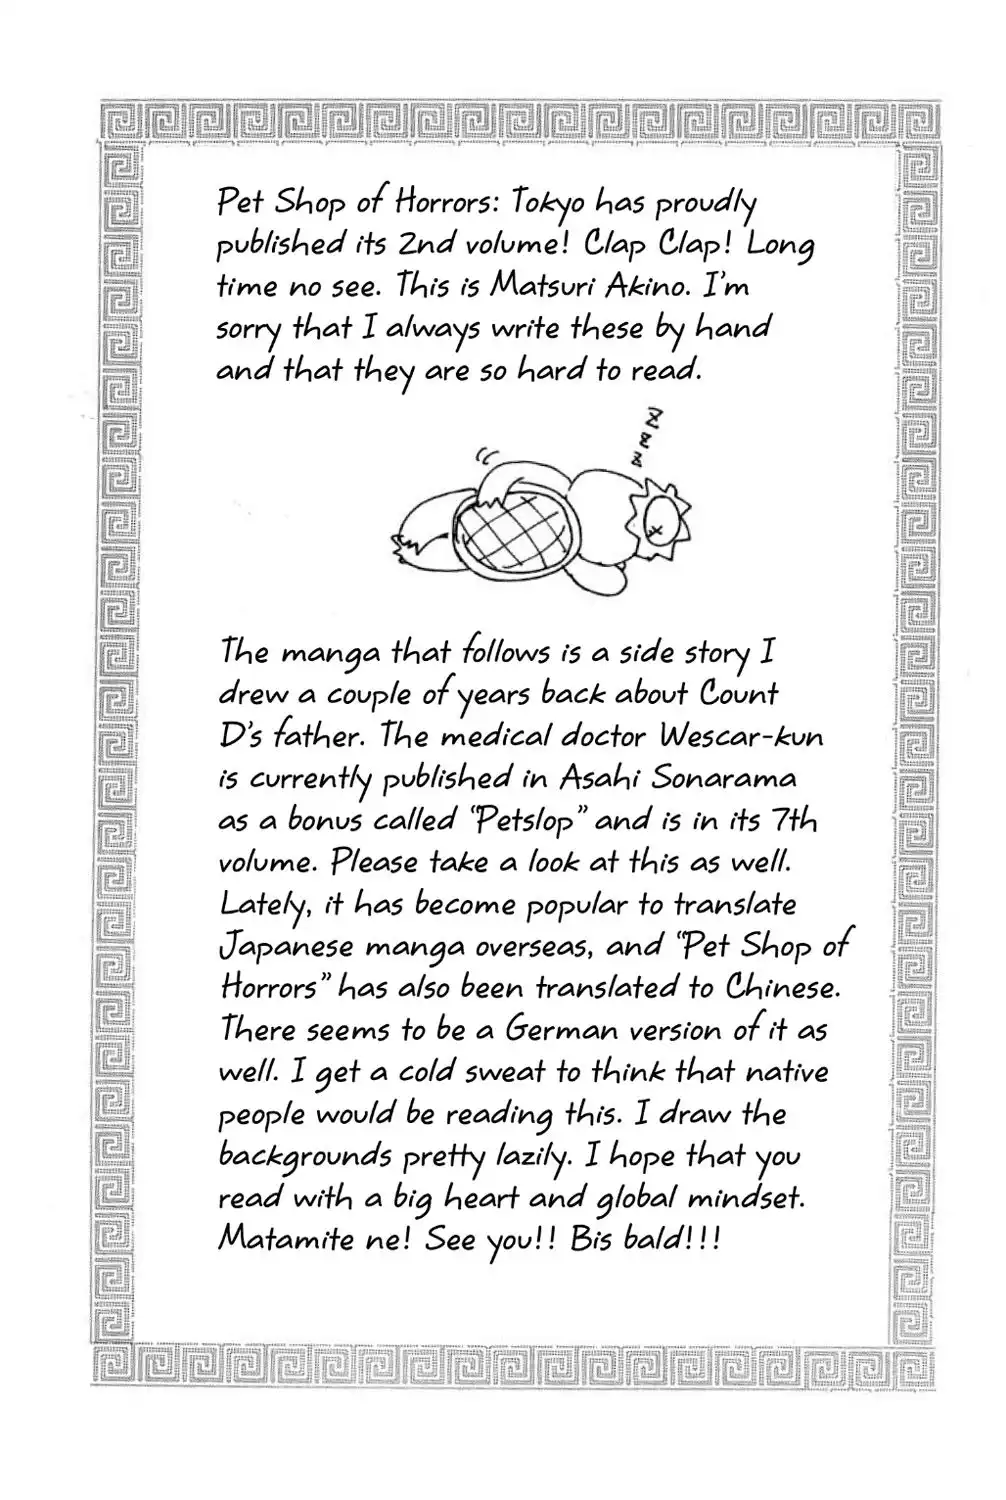 Pet Shop of Horrors: Tokyo has proudly
published its 2nd volume! Clap Clap! Long
time no see. This is Matsuri Akino. I'm
sorry that I always write these by hand
and that they are so hard to read.
The manga that follows is a side story I
drew a couple of years back about Count
D's father. The medical doctor Wescar-kun
is currently published in Asahi Sonarama
as a bonus called "Petslop" and is in its 7th
volume. Please take a look at this as well.
Lately, it has become popular to translate
Japanese manga overseas, and "Pet Shop of
Horrors" has also been translated to Chinese.
There seems to be a German version of it as
well. I get a cold sweat to think that native
people would be reading this. I draw the
backgrounds pretty lazily. I hope that you
read with a big heart and global mindset.
Matamite ne! See you!! Bis bald!!!